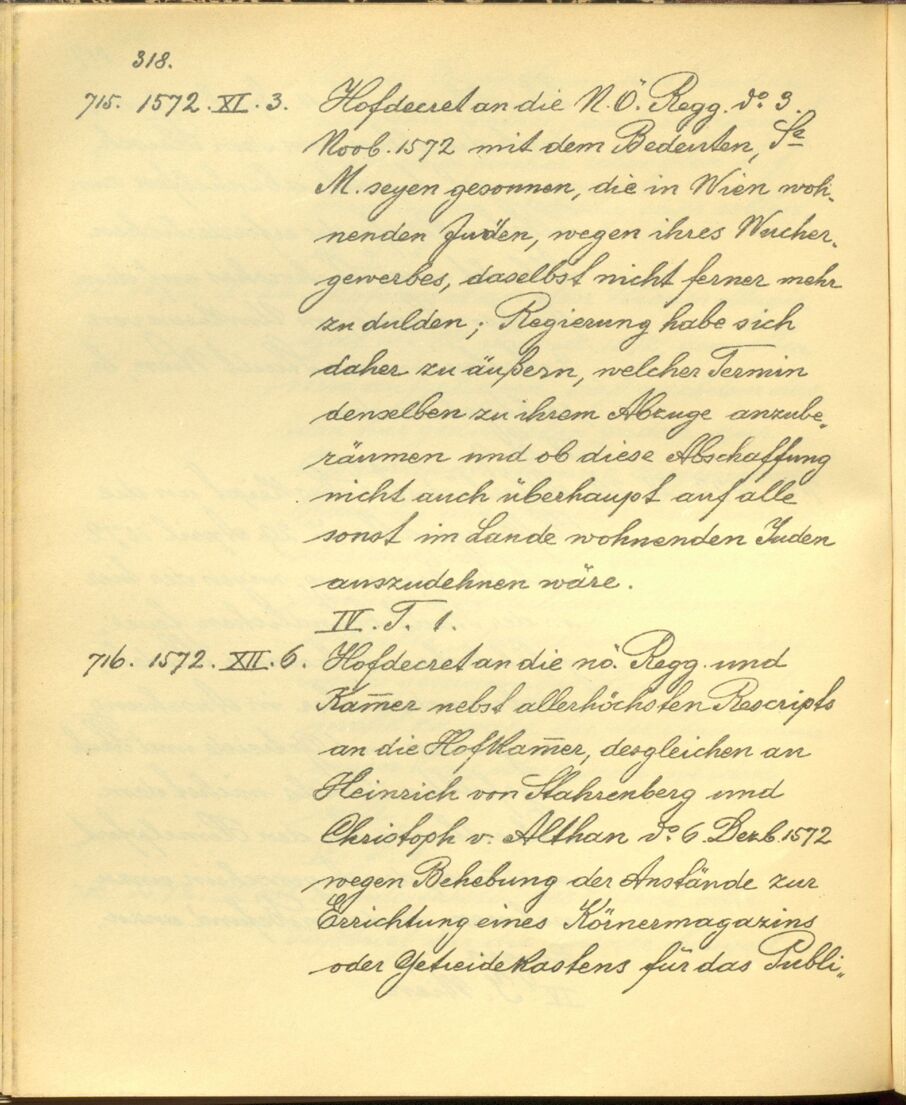 318.
715. 1572. XI. 3. Hofdecret an die N. Ö. Regg. do. 3.
Novb. 1572 mit dem Bedeuten, Se
M. seyen gesonnen, die in Wien woh„
nenden Juden, wegen ihres Wucher„
gewerbes, daselbst nicht ferner mehr
zu dulden; Regierung habe sich
daher zu äußern, welcher Termin
denselben zu ihrem Abzuge anzube„
räumen und ob diese Abschaffung
nicht auch überhaupt auf alle
sonst im Lande wohnenden Juden
auszudehnen wäre.
IV. T. 1.
716. 1572. XII. 6. Hofdecret an die nö. Regg. und
Kam̄er nebst allerhöchsten Rescripts
an die Hofkam̄er, desgleichen an
Heinrich von Stahrenberg und
Christoph v. Althan do. 6. Dezb. 1572
wegen Behebung der Anstände zur
Errichtung eines Körnermagazins
oder Getreidekastens für das Publi„